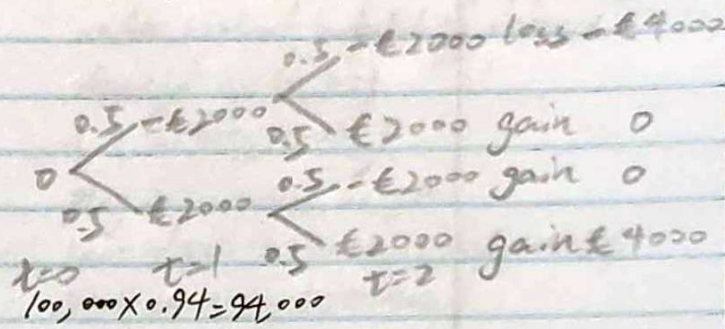 0.5 -€2000 loss -€4000
0.5 -€2000 0.5 €2000 gain 0
0 0.5 -€2000 gain 0
0.5 €2000
0.5 €2000 gain €4000
t=0 t=1 t=2
100,000×0.94=94,000